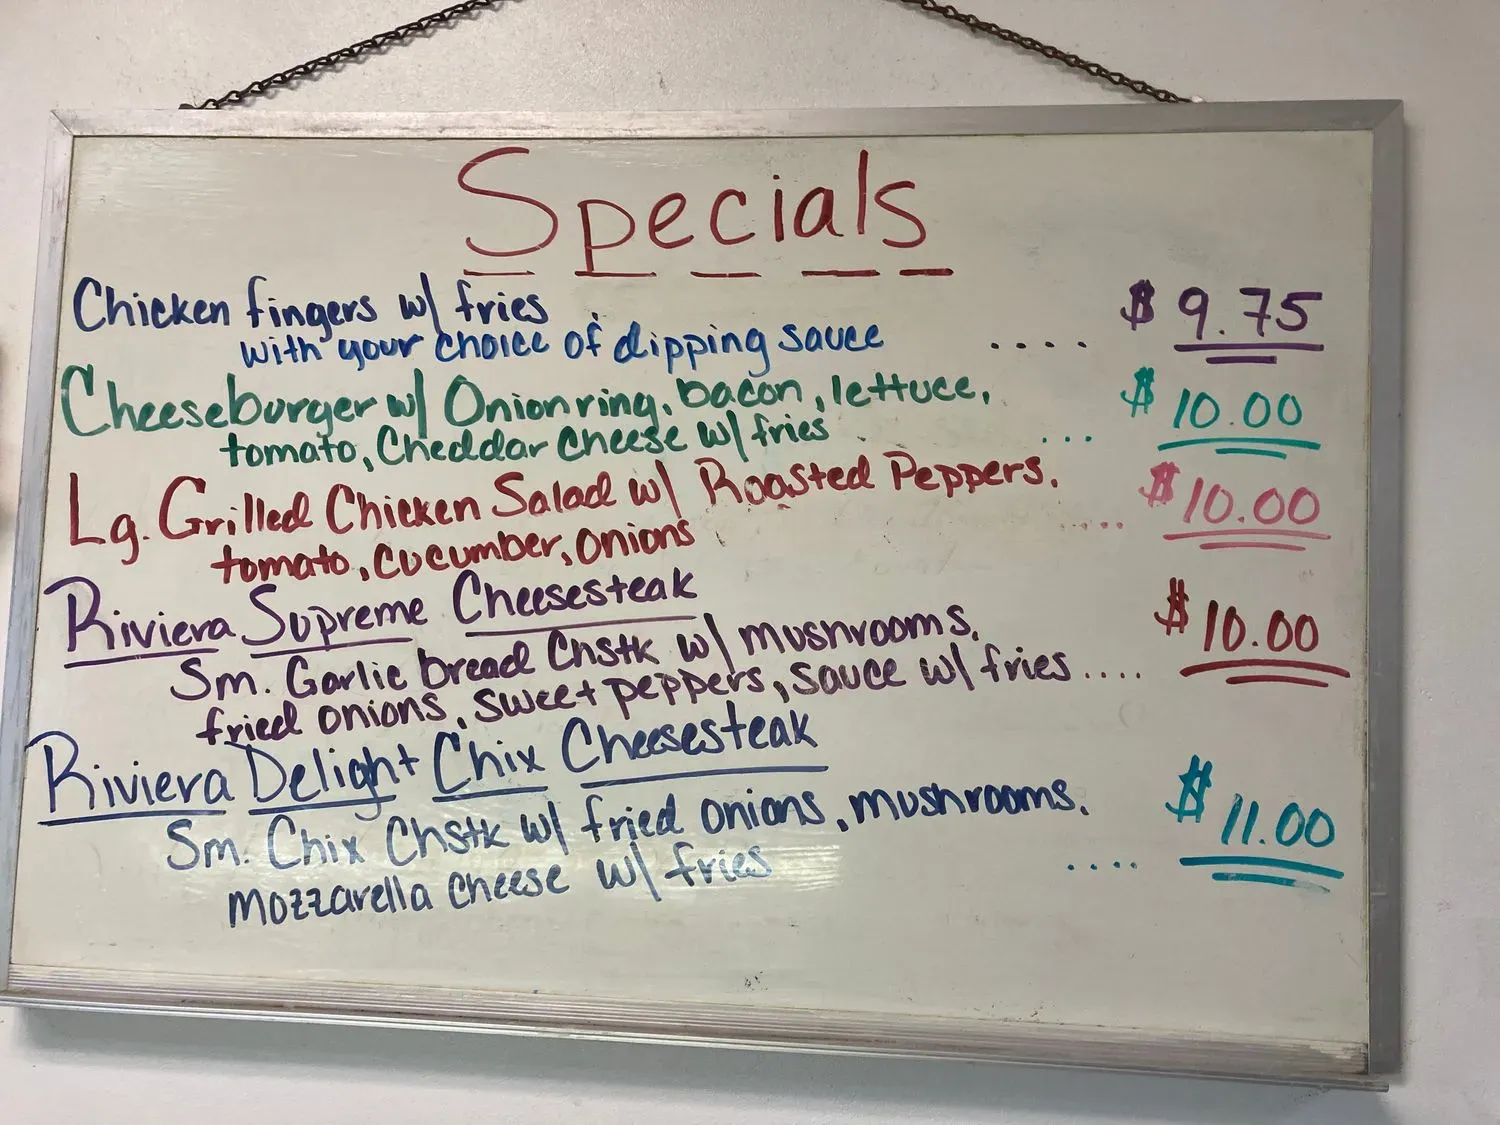 Specials
Chicken fingers w/ fries
with your choice of dipping sauce .... $ 9.75
Cheeseburger w/ Onion ring, bacon, lettuce,
tomato, Cheddar cheese w/ fries ... $ 10.00
Lg. Grilled Chicken Salad w/ Roasted Peppers,
tomato, cucumber, onions ..... $ 10.00
Riviera Supreme Cheesesteak
Sm. Garlic bread Chstk w/ mushrooms,
fried onions, sweet peppers, sauce w/ fries .... $ 10.00
Riviera Delight Chix Cheesesteak
Sm. Chix Chstk w/ fried onions, mushrooms,
mozzarella cheese w/ fries .... $ 11.00